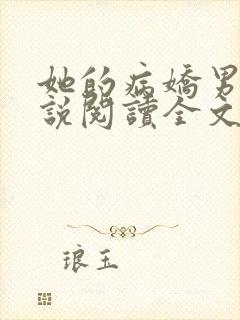 她的病嬌男
說閱讀全文
琅玉